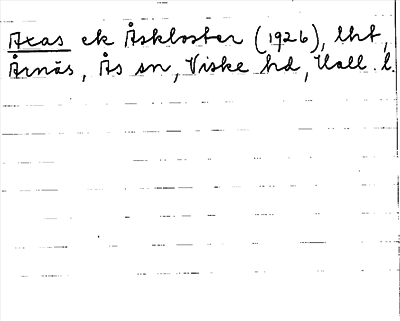 Axas ek Åskloster (1926), lht,
Årnäs, Ås sn, Viske hd, Hall. l.